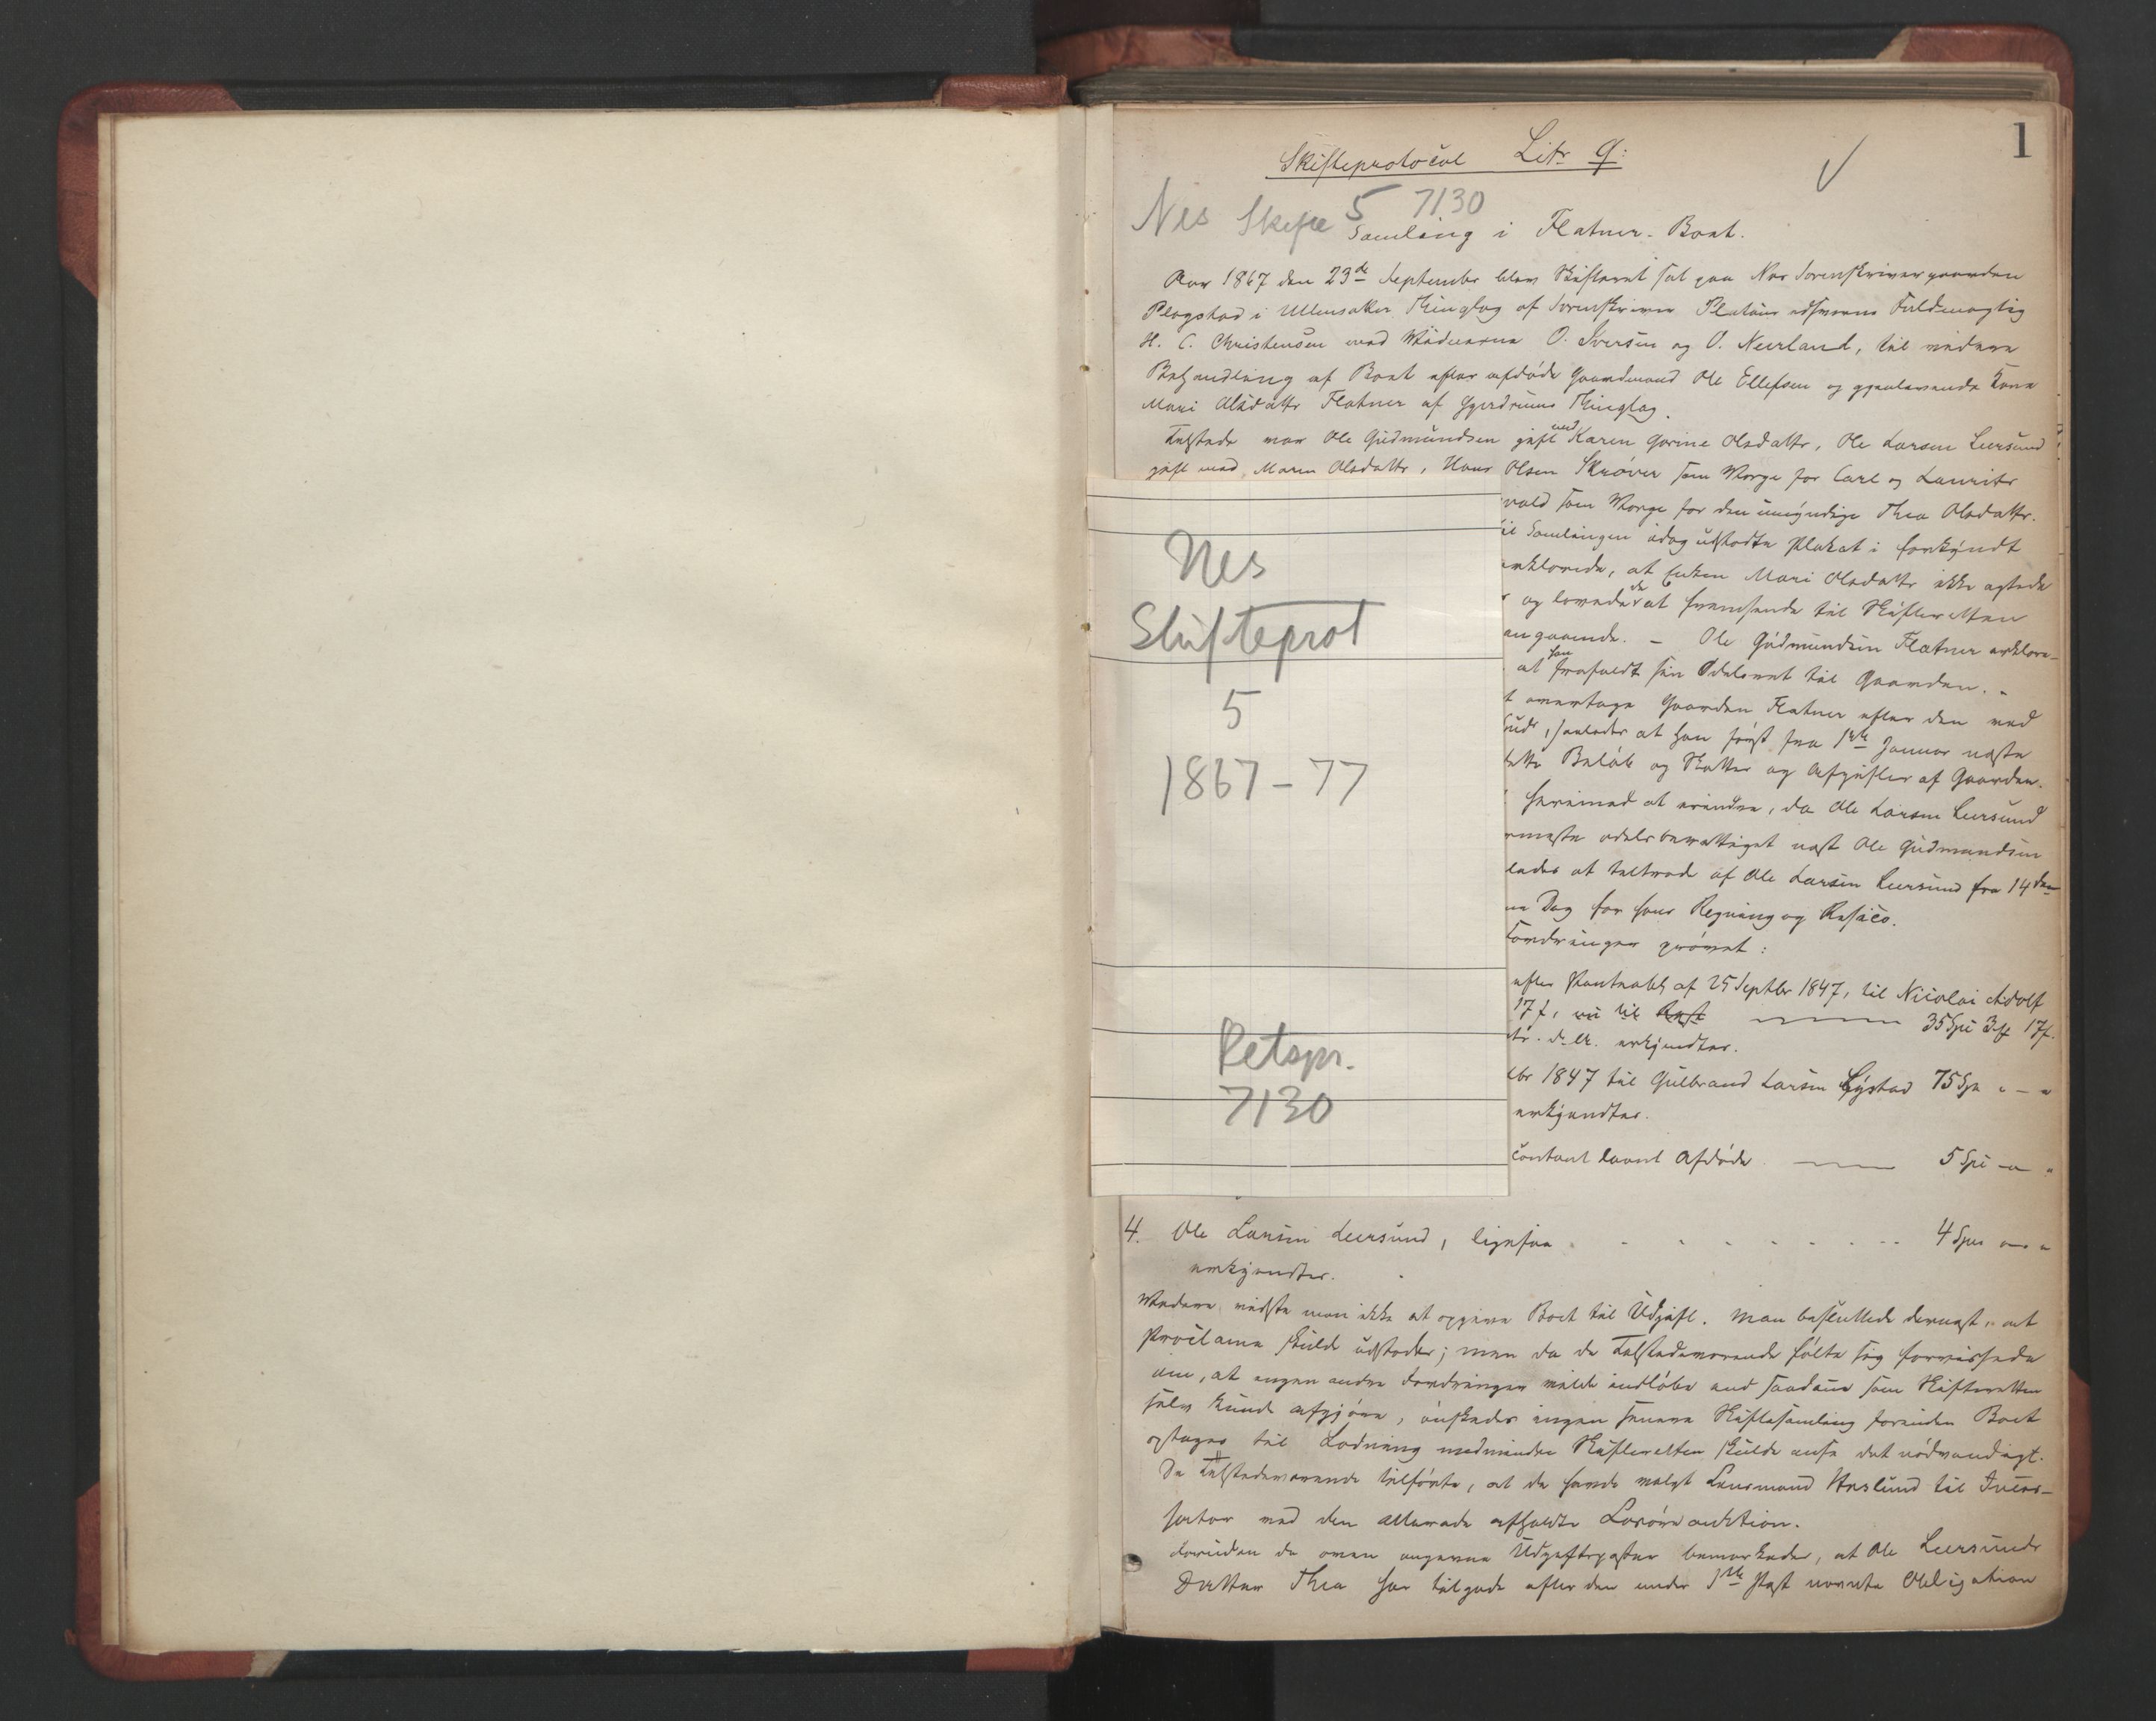 1
Skifteprotocol Litr q:
Nes Skifte 5 7130
Samling i Flatner-Boet.
Aar 1867 den 23de September blev Skifteret sat paa Nes Sorenskrivergaarden
Plogstad i Ullensaker Thinglag af Sorenskriver edsvorne Fuldmægtig
H. C. Christensen med Vidnerne O. Iversen og O. Neerland, til videre
Behandling af Boet efter afdøde Gaardmand Ole Ellefsen og gjenlevende Kone
Mari Olsdattr Flatner af Gjerdrums Thinglag.
Tilstede var Ole Gudmundsen gift med Karen Gorine Olsdattr, Ole Larsen Leersund
gift med Maren Olsdattr, Hans Olsen Skrøver som Værge for Carl og Lauritz
vold som Værge for den umyndige Thea Olsdattr.
til Samlingen idag udstædte Plakat i forkyndt
erklærede, at Enken Mari Olsdattr ikke agtede
og lovede de at fremsende til Skifteretten
angaaende. – Ole Gudmundsen Flatner erklære-
at han frafaldt sin Odelsret til Gaarden. –
t overtage Gaarden Flatner efter den ved
bud, saaledes at han først fra 1ste Januar næste
dette Beløb og Skatter og Afgifter af Gaarden.
herimod at erindre, da Ole Larsen Leersund
rmeste odelsberettiget næst Ole Gudmundsen
ledes at tiltræde af Ole Larsen Leersund fra 14den
ne Dag for hans Regning og Risico.
Fordringer prøvet:
efter Panteobl. af 25 Septbr 1847, til Nicolai Adolf
17 f, nu til 35 Spd 3 ƒ 17 f.
erkjendtes.
br 1847 til Gulbrand Larsen Gystad 75 Spd " – "
erkjendtes.
contant laant Afdøde 5 Spd – "
Nes
Skifteprot
5
1867 – 77
Retspr.
7130
4. Ole Larsen Leersund, ligesaa . . . . . . . . 4 Spd – "
erkjendtes.
Videre vidste man ikke at opgive Boet til Udgift. Man besluttede dernæst, at
Proclama skulde udstædes; men da de Tilstedeværende følte sig forvissede
om, at ingen andre Fordringer vilde indløbe end saadanne som Skifteretten
selv kunde afgjøre, ønskedes ingen senere Skiftesamling forinden Boet
optages til Lodning medmindre Skifteretten skulde anse det nødvendigt.
De Tilstedeværende tilførte, at de havde valgt Lensmand Haslund til Incas-
sator ved den allerede afholdte Løsøreauktion.
Foruden de oven angivne Udgiftsposter bemærkedes, at Ole Leersunds
Datter Thea har tilgode efter den under 1ste Post nævnte Obligation